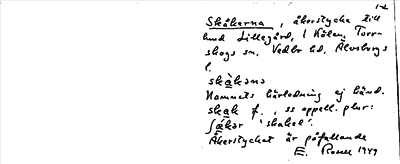 1-2
Skåkerna, åkerstycke till
hmd Lillegård, i Kölen, Torr-
skogs sn. Vedbo hd. Älvsborgs
l.
skàkənə
Namnets härledning ej känd.
skak f., ss appell. plur:
ʃákər 'skakel'.
Åkerstycket är påfallande
E. Rosell 1949